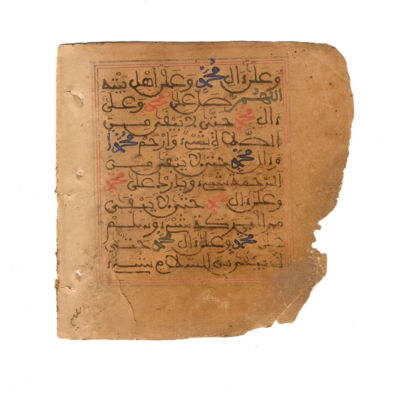 وعلى ءال محمد وعلى أهل بيته
اللهم صل على محمد وعلى
ءال محمد حتى لا يبقى من
الصلاة شيء وارحم محمدا
وءال محمد حتى لا يبقى من
الرحمة شيء وبارك على محمد
وعلى ءال محمد حتى لا يبقى
من البركة شيء وسلم
محمد وعلى ءال محمد حتى
لا يبقى من السلام شيء